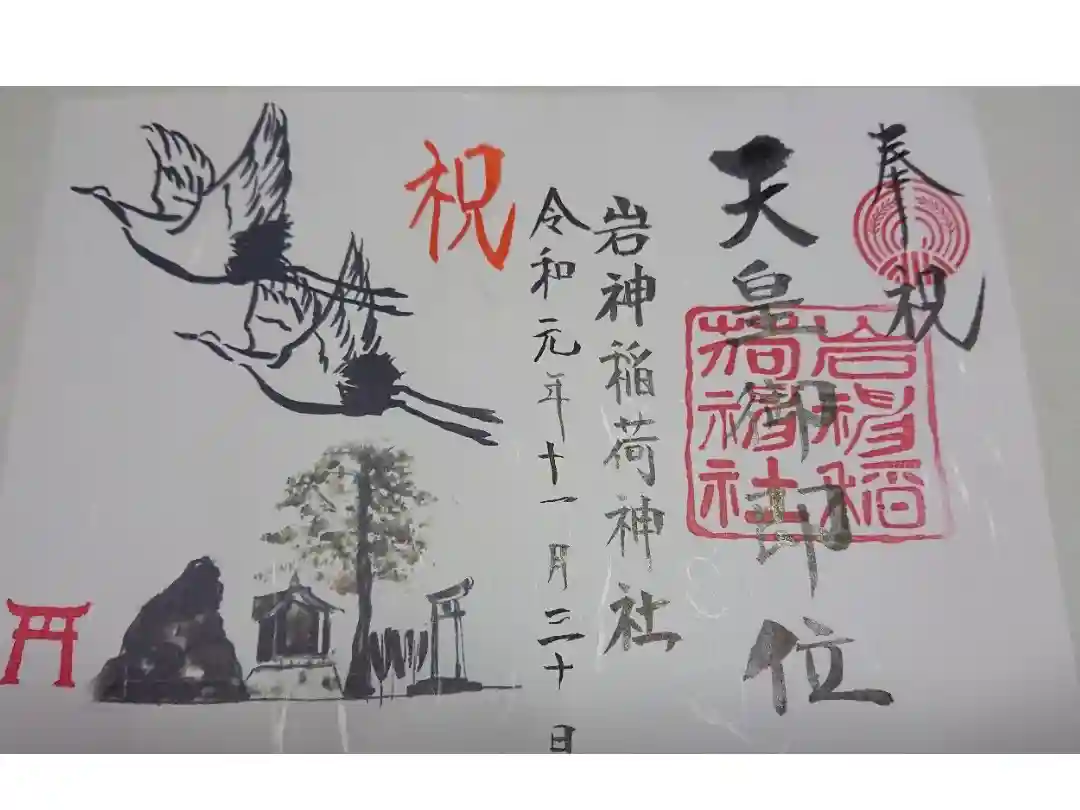 奉祝
天皇御即位
岩神稲荷神社
岩神稲荷神社
令和元年十一月三十日
祝